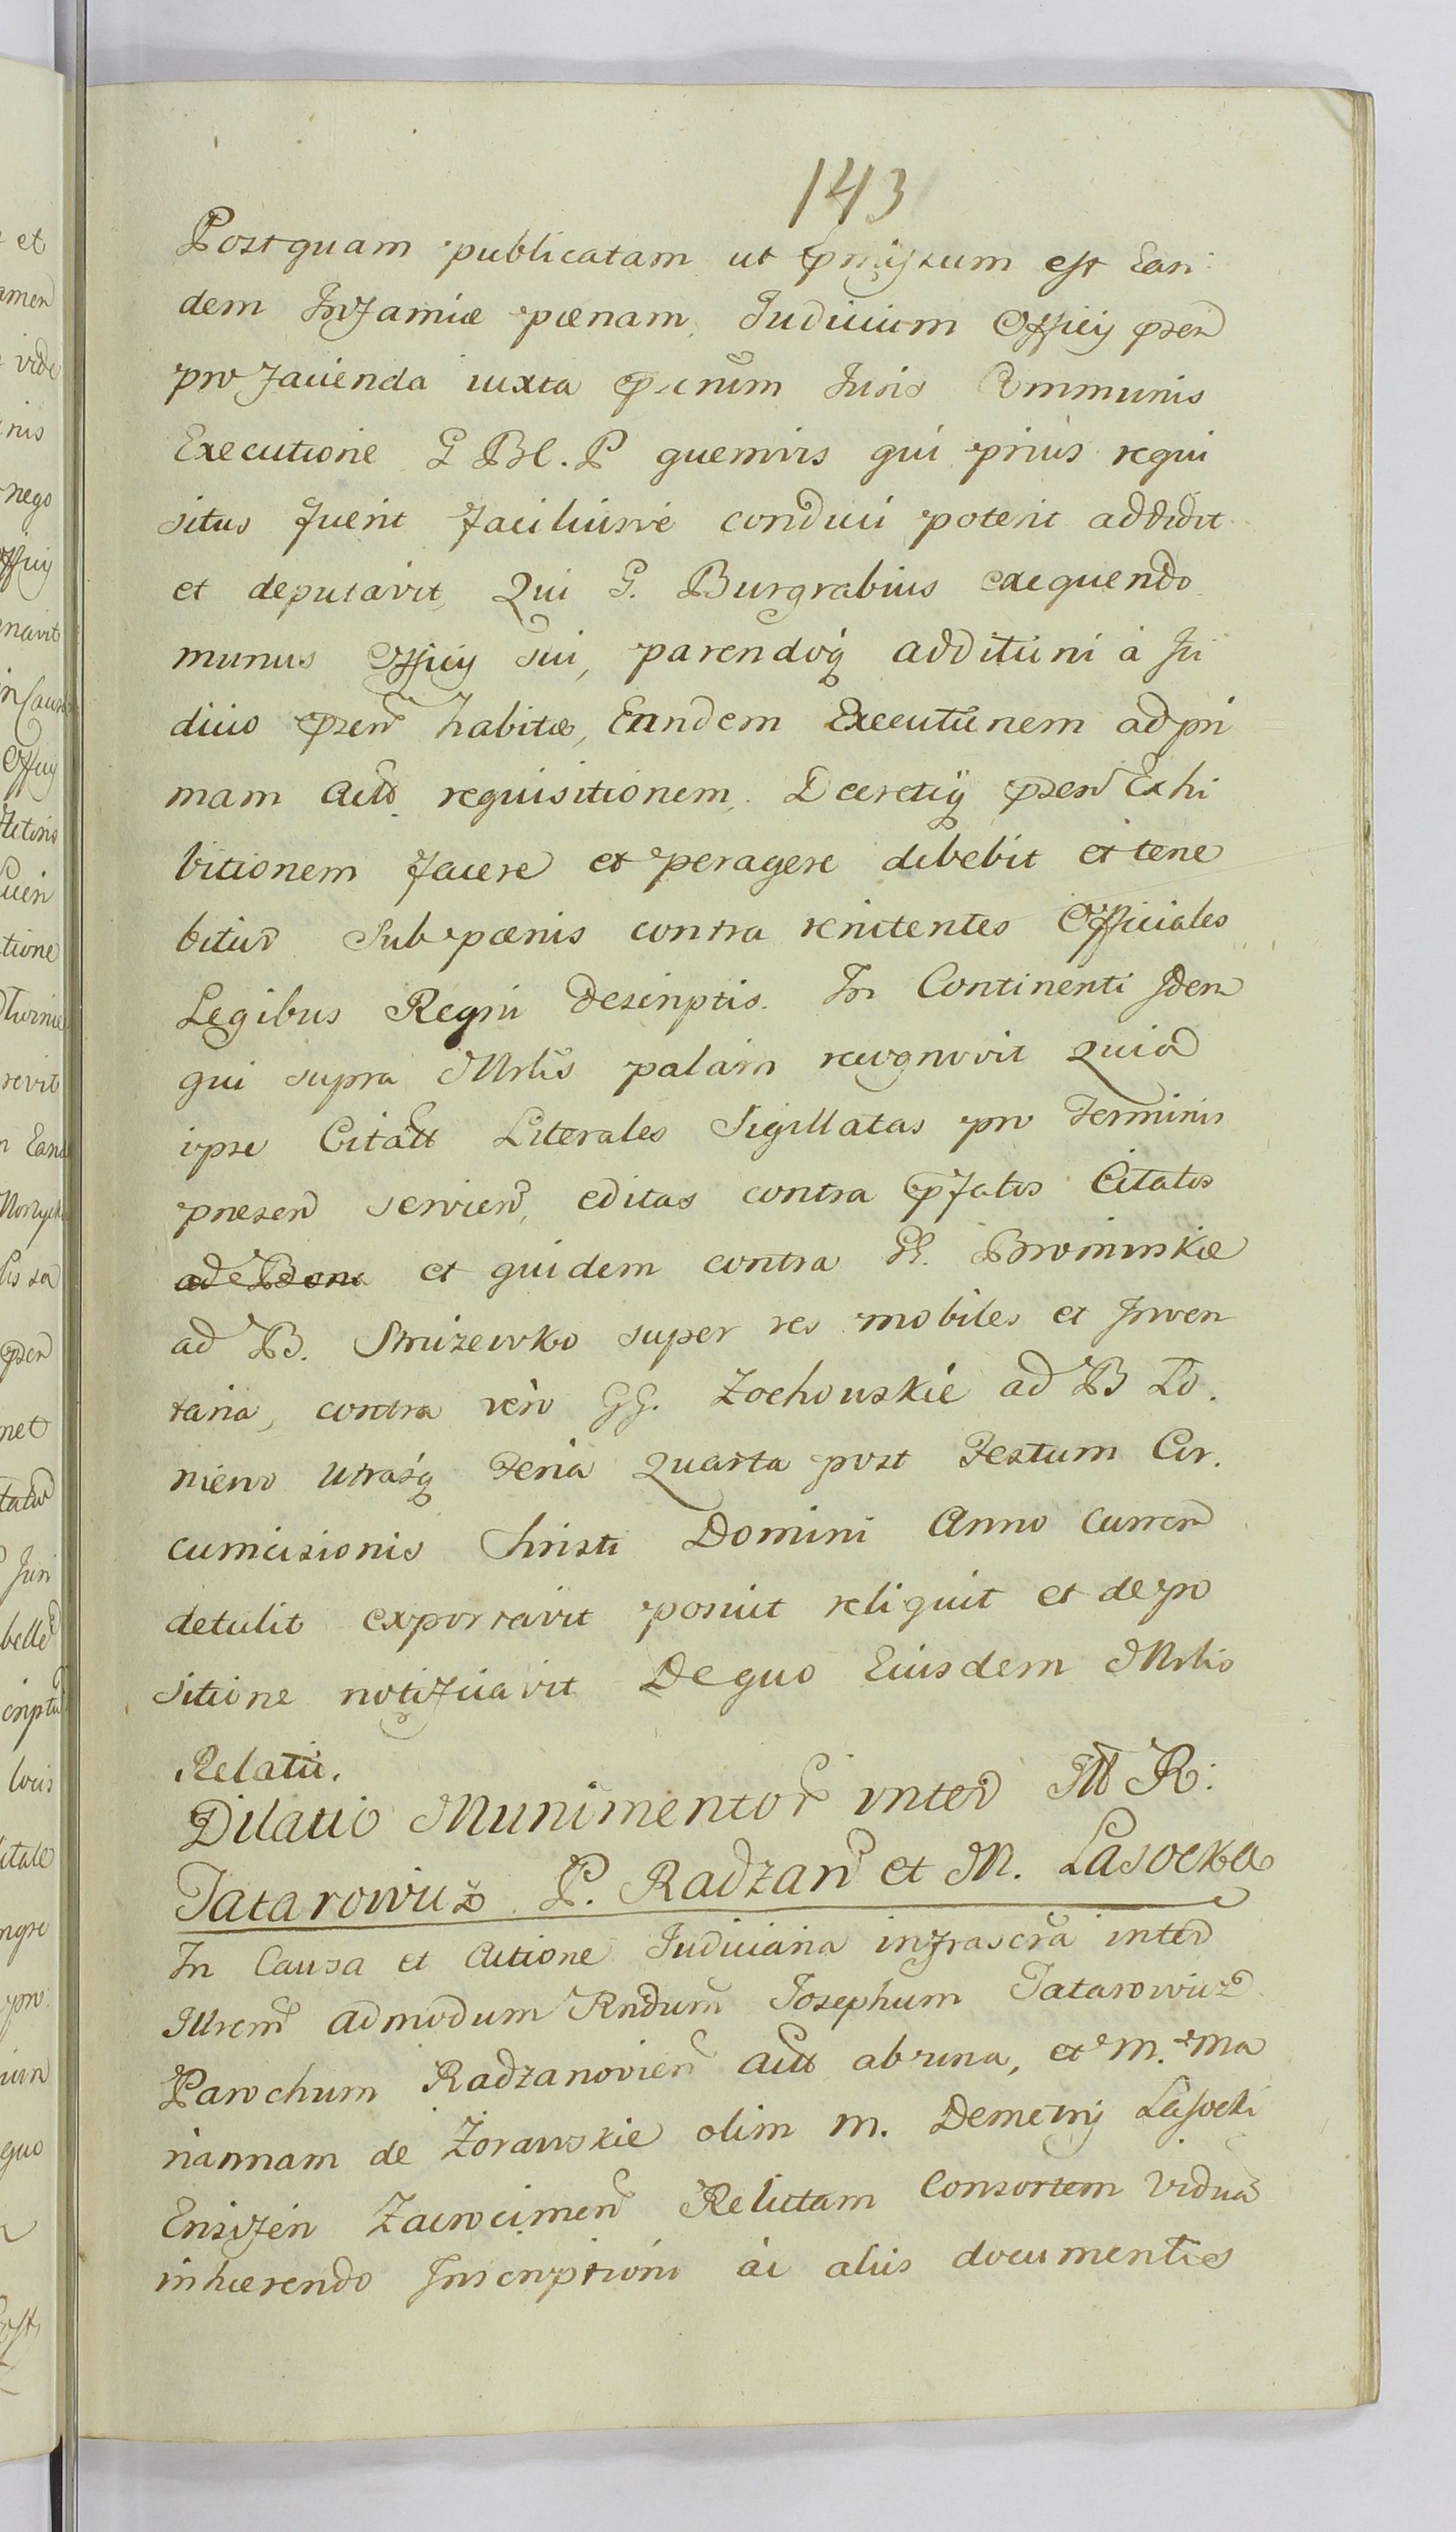 143
Postquam publicatam ut pmissum est Ean
dem Infamiæ pænam, Judicium Officij psen
pro facienda iuxta Juris Communis
Executione G Bl. P quemvis qui prius requi
situs fuerit faciliusve conduci poterit addidit
et deputavit, Qui G. Burgrabius exequendo
munus Officij sui, parendoq additioni à Ju
dicio psen habitæ, Eandem Executionem ad pri
mam Actt requisitionem, Decretiq psen Exhi
bitionem facere et peragere debebit et tene
bitur sub pænis contra renitentes Officiales
Legibus Regni descriptis. In Continenti Iden
qui supra Mrlis palam recognovit Quia
ipse Citatt Literales Sigillatas pro Terminis
presen servien, editas contra pfatos Citatos
ad Bona et quidem contra GG. Broninskie
ad B. Struzewko super res mobiles et Inven
taria, contra vero GG. Zochowskie ad B Do.
niewo utrasq Feria Quarta post Festum Cir.
cumcisionis Christi Domini Anno Curren
detulit exportavit posuit reliquit et depo
sitione notificavit De quo Eiusdem Mrlis
Relatio.
Dilatio Munimentor inter Ill R:
Tatarowicz P. Radzan et M. Lasocka
In Causa et Actione Judiciaria infrascra inter
Illrem Admodum Rndum Josephum Tatarowicz
Parochum Radzanovien Actt ab una, et M. Ma
riannam de Zorawskie olim M. Demetrij Lasocki
Ensifen Zacrocimen Relictam Consortem Vidua
inhærendo Inscriptioni ac aliis documentis